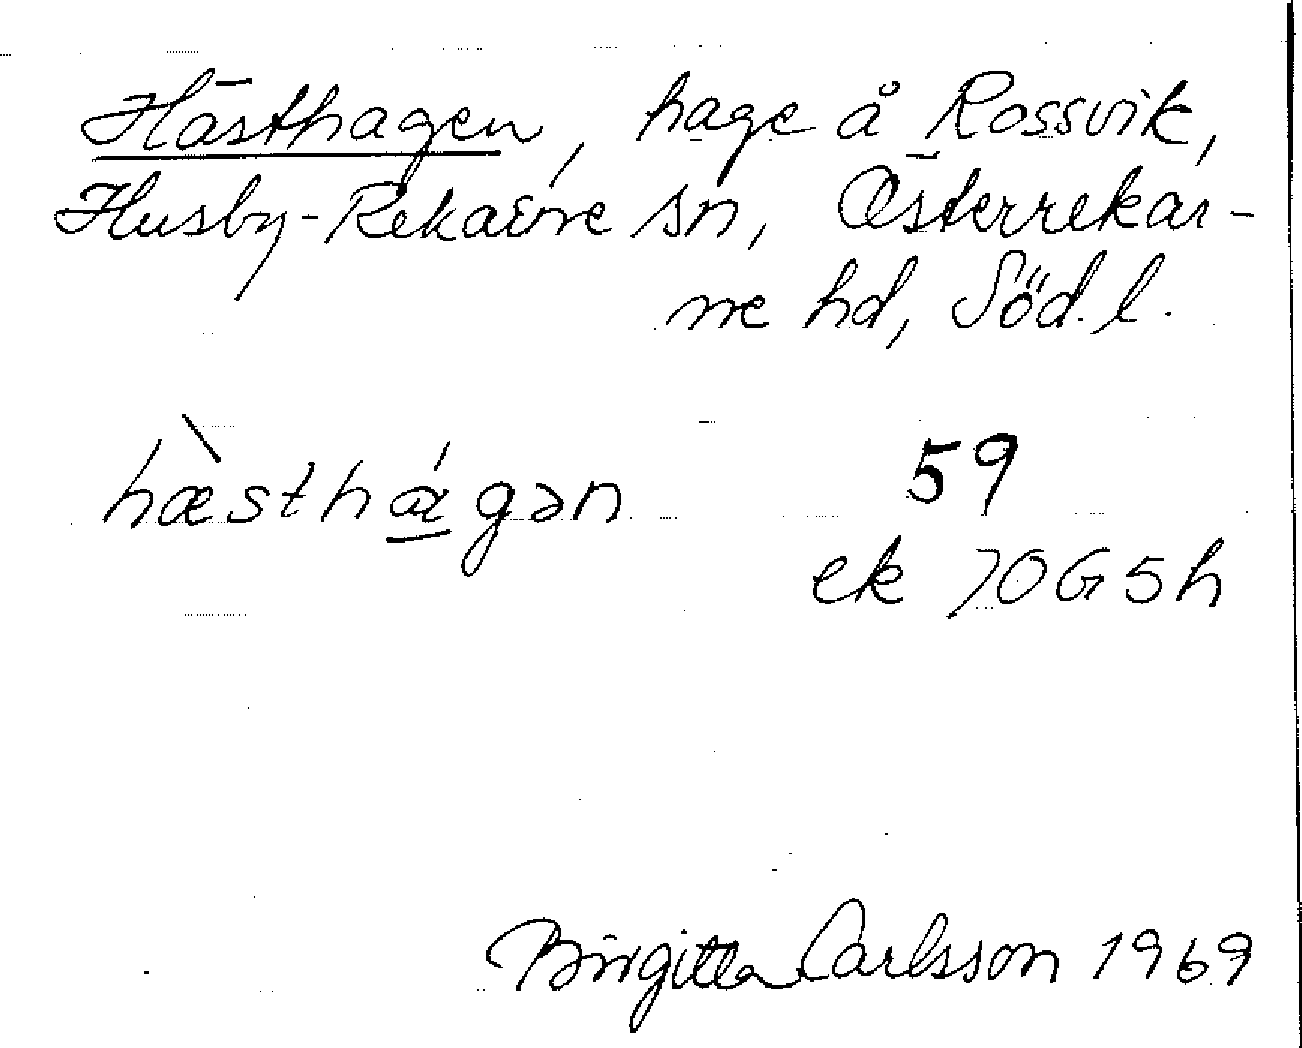 Hästhagen, hage å Rossvik,
Husby-Rekarne sn, Österrekar-
ne hd, Söd. l.
hæ̀sthɑ́gən 59
ek 10G5h
Birgitta Carlsson 1969